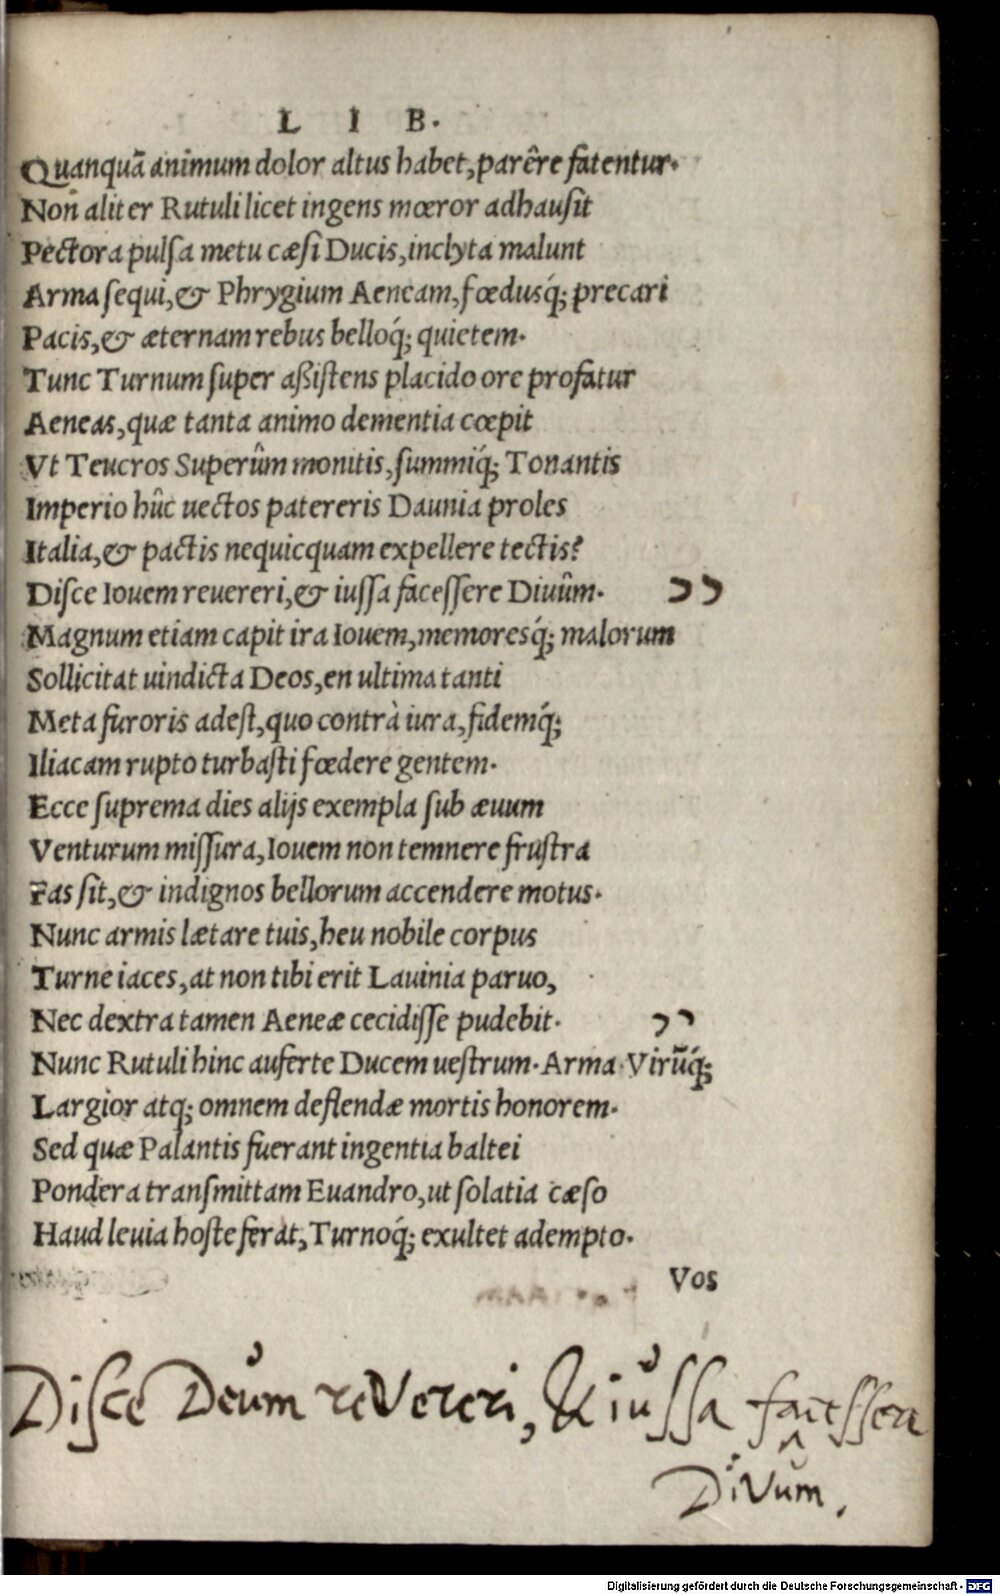 L I B.
Quanquã animum dolor altus habet, parêre fatentur.
Non aliter Rutuli licet ingens mœror adhausit
Pectora pulsa metu cæsi Ducis, inclyta malunt
Arma sequi, & Phrygium Aeneam, fœdusq́; precari
Pacis, & æternam rebus belloq́; quietem.
Tunc Turnum super aßistens placido ore profatur
Aeneas, quæ tanta animo dementia cœpit
Vt Teucros Superûm monitis, summiq́; Tonantis
Imperio hûc uectos patereris Daunia proles
Italia, & pactis nequicquam expellere tectis?
Disce Iouem reuereri, & iussa facessere Diuûm.
Magnum etiam capit ira Iouem, memoresq́; malorum
Sollicitat uindicta Deos, en ultima tanti
Meta furoris adest, quo contrà iura, fidemq́;
Iliacam rupto turbasti fœdere gentem.
Ecce suprema dies alijs exempla sub æuum
Venturum missura, Iouem non temnere frustra
Fas sit, & indignos bellorum accendere motus.
Nunc armis lætare tuis, heu nobile corpus
Turne iaces, at non tibi erit Lauinia paruo,
Nec dextra tamen Aeneæ cecidisse pudebit.
Nunc Rutuli hinc auferte Ducem uestrum. Arma Virũq́;
Largior atq; omnem deflendæ mortis honorem.
Sed quæ Palantis fuerant ingentia baltei
Pondera transmittam Euandro, ut solatia cæso
Haud leuia hoste ferat, Turnoq́; exultet adempto.
Vos
Disce Deum reVereri, & iussa facessere
DiVûm.
Digitalisierung gefördert durch die Deutsche Forschungsgemeinschaft - DFG